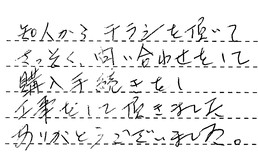 知人から チラシを頂いて
さっそく、問い合わせをして
購入手続きをし
工事をして頂きました
ありがとうございました。